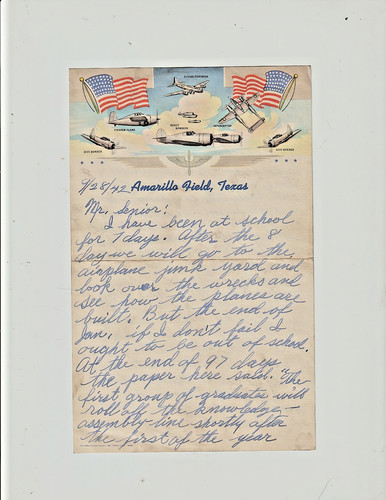 FLYING FORTRESS
FIGHTER PLANE
DIVE BOMBER
DIVE BOMBER
9/28/42 Amarillo Field, Texas
Mr. Senior:
I have been at school
for 7 days. After the 8
day we will go to the
airplane junk yard and
look over the wrecks and
see how the planes are
built. But the end of
Jan. if I don't fail I
ought to be out of school.
At the end of 97 days
the paper here said. "The
first group of graduates will
roll off the knowledge-
assembly-line shortly after
the first of the year